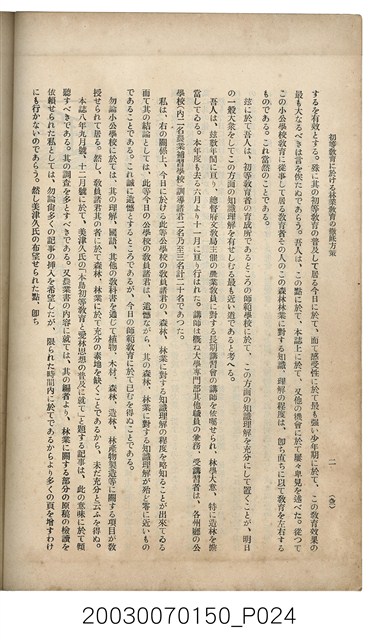 初等教育に於ける林業教育の徹底方策
二
するを有效とする。殊に其の初等教育の普及して居る今日に於て、而て感受性に於て最も強い少年期に於て、この教育效果の
最も大なるべきは言を俟たぬであらう。吾人は、この點に於て、本誌上に於て、又他の機會に於て屢々卑見を述べた。從つて
この小公學校教育に從事して居る教育者その人のこの森林林業に對する知識、理解の程度は、卽ち直ちに以て教育を左右する
ものである。これ當然のことである。
玆に於て吾人は、初等教育者の育成所であるところの師範學校に於て、この方面の知識理解を充分にして置くことが、明日
の一般大衆をしてこの方面の知識理解を有せしむる最も近い道であると考へる。
吾人は、玆數年間に亘り、總督府文教局主催の農業教員に對する長期講習會の講師を依囑せられ、林學大意、特に造林を擔
當してゐる。本年度も去る六月より十一月に亘り行はれた。講師は槪ね大學專門部其他職員の兼務、受講習者は、各州廳の公
學校(内二名農業補習學校)訓導諸君二名乃至三名計二十名であつた。
私は、右の關係上、今日に於ける此等公學校の教員諸君の、森林、林業に對する知識理解の程度を略知ることが出來てゐる
而て其の結論としては、此等今日の公學校の教員諸君は、遺憾ながら、其の森林、林業に對する知識理解が殆ど零に近いもの
であることである。これ誠に遺憾とするところであるが、今日の師範教育に於て已むを得ぬことである。
勿論小公學校に於ては、其の理解、國語、其他の教科書を通じて植物、木材、森林、造林、林產物製造等に關する項目が教
授せられて居る。然し、教員諸君其の者に於て森林、林業に於て充分の素地を缺くことであるから、未だ充分と云ふを得ぬ。
本誌八年九月號、十二月號に於て、美津久氏の「本島初等教育と愛林思想の普及に就て」と題する記事は、此の意味に於て傾
聽すべきである。其の調査を多とすべきである。又農業書の内容に就ては、其の編者より、林業に關する部分の原稿の檢讀を
依賴せられた私としては、勿論尙多くの記事の挿入を希望したが、限られた時間内に於てであるからより多くの頁を增すわけ
にも行かないのであらう。然し美津久氏の希望せられた點、卽ち
20030070150_P024